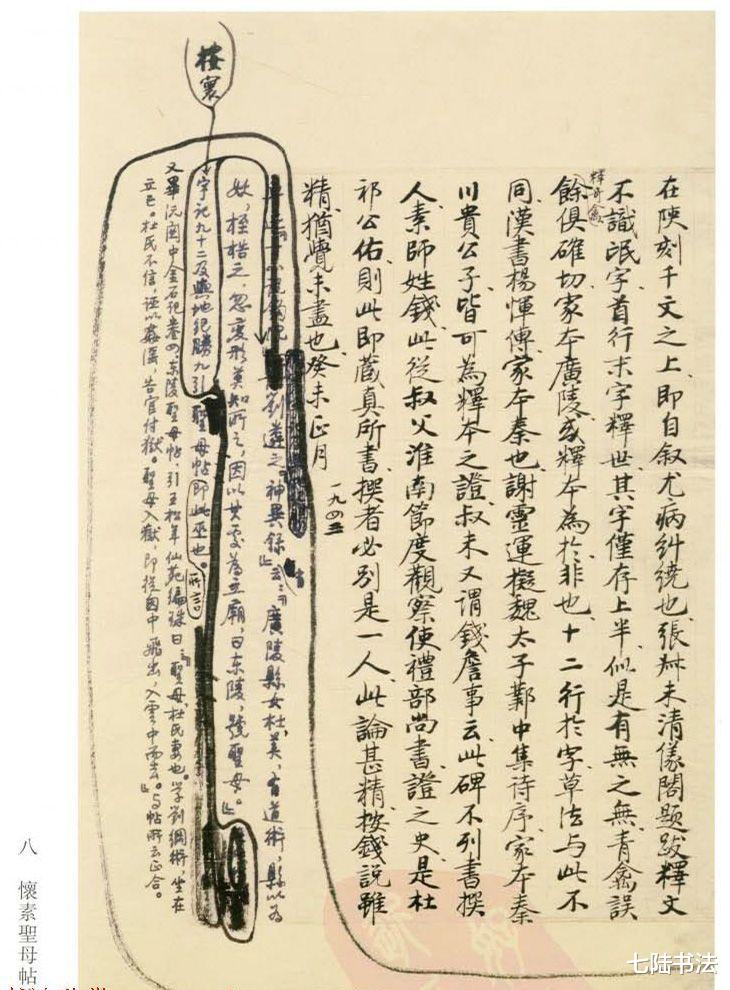 在陝刻千文之上即自叙尤病糾繞也張叔未清儀閣題跋釋文
不識氓字首行末字釋世其字僅存上半似是有無之無青禽誤
釋奇禽
餘俱確切家本廣陵或釋本為於非也十二行於字草法與此不
同漢書楊惲傳家本秦也謝靈運擬魏太子鄴中集待序家本秦
川貴公子皆可為釋本之證叔未又謂錢詹事云此碑不列書撰
人素師姓錢此從叔父淮南節度觀察使禮部尚書證之史是杜
祁公佑則此即藏真所書撰者必別是一人此論甚精按錢說雖
精猶覺未盡也癸未正月
一九四三
劉遴之神異錄云廣陵縣女杜美，有道術，縣以為
妖，桎梏之，忽變形莫知所之，因以其處為立廟，曰东陵，號聖母。
按寰
宇記九十二及輿地纪勝九引
聖母帖
即此巫也。
所言
又畢沅関中金石記卷四东陵聖母帖，引王松年仙苑编錄曰聖母杜氏妻也。学劉綱術，坐在
立亡。杜氏不信，誣以姦淫，告官付獄。聖母入獄，即從窗中飛出，入雲中而去。与帖所云正合。
八　懷素聖母帖
七陆书法